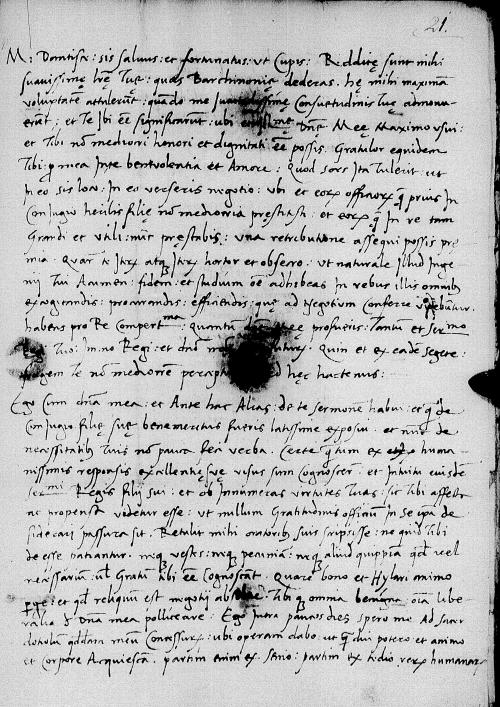 21.
M: Domitisr: sis saluus: et fortunatus: ut Cupis: Redditę sunt mihi
suauissimę lr̃ę Tuę: quas Barchinonię dederas. hę mihi maximā
voluptatē attulerūt: quādo me Consuetudinis tuę admonue-
erāt: et Te Ibi ēē significarūt: ubi Dn̄ę Męę Maximo usui:
et Tibi nō mediocri honori et dignitati ēē possis. Gratulor equidem
Tibi: p mea In te beniuolentia et Amore: Quod sors Ita tulerit: ut
in eo sis loco: In eo verseris negotio: ubi et eorȝ officiorȝ q̄ prius In
Coniugio filię nō mediocria pręstitisti: et eorȝ q̄ In re tam
Grandi et utili: nūc pręstabis: una retributione assequi possis prę
mia. Quare te Itrȝ atqȝ Itrȝ hortor et obsecro: ut naturale Illud Inge
nij Tui Acumen: fidem: et studium oē adhibeas In rebus illis omnibȝ
exogitandis: procurandis: efficiendis: quę ad Negotium Conferre videbūtur.
habens pro Re Compertma quantū profueris: Tantū et sermo
Tuo: Regi: et dn̄o Quin et ex eadē segete:
Te nō mediocrē hęc hactenus:
Ego Cum dn̄a mea: et Ante hac Alias: de te sermonē habui: et q̄ de
Coniugio filię suę benemeritus fueris latissime exposui. et nūc de
necessitatibȝ Tuis nō pauca feci verba. Certe q̄tum ex huma-
nissimis responsis excellentię suę visus sum Cognoscere. et Intuitu eiusdē
sermi Regis filij sui: et ob Innumeras virtutes Tuas: sic Tibi affect
ac propensa videtur esse: ut nullum Gratitudinis officiū In se ipa de
siderari passura sit. Retulit mihi oratoribȝ suis scripsisse: ne quid Tibi
de esse patiantur. neqȝ vestes: neqȝ pecuniā: neqȝ aliud quippiā qd̄ vel
necessariū: vel Gratū tibi ēē Cognoscāt. Quare bono et Hylari animo
et qd̄ reliquū est negotij Tibi omnia benigna: oīa libe-
ralia Dn̄a mea polliceare. Ego Intra paucos dies spero me Ad sacer
dotiolū qd̄dam meū Concessurȝ: ubi operam dabo: ut q̄ diu potero et animo
et Corpore Acquiescā. partim enim ex senio: partim ex tedio rerȝ humanarȝ